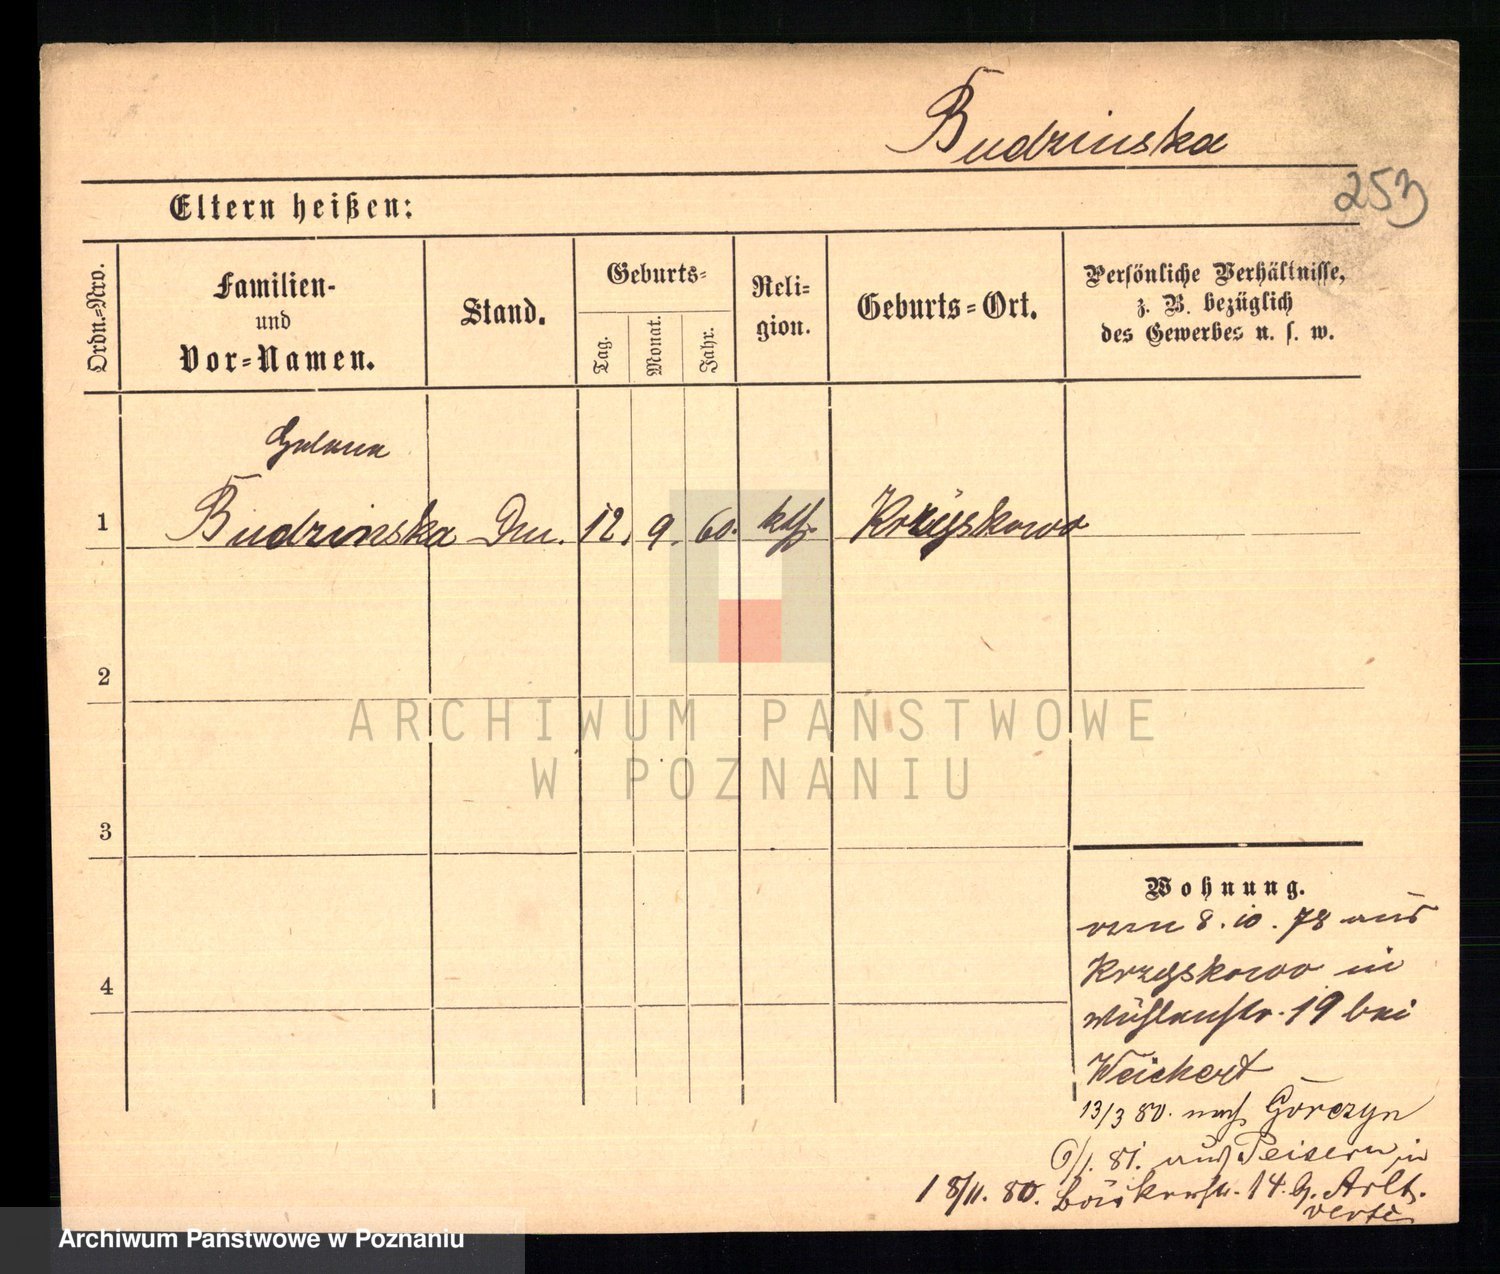 Budzinska
253
Eltern heißen:
Ordn.-Nro.
Familien-
und
Vor-Namen.
Stand.
Geburts-
Tag.
Monat.
Jahr.
Reli-
gion.
Geburts-Ort.
Persönliche Verhältnisse,
z. B. bezüglich
des Gewerbes u. s. w.
Helena
1 Budzinska Dm. 12. 9. 60. kth. Krzyskowo
2
3
4
Wohnung.
vom 8. 10. 78 aus
Krzyskowo in
Mühlenstr. 19 bei
Weichert
13/3 80. nach Górczyn
6/1. 81. aus Peisern in
18/11. 80. Bäckerstr. 14. b. Arlt.
verte
ARCHIWUM PAŃSTWOWE
W POZNANIU
Archiwum Państwowe w Poznaniu